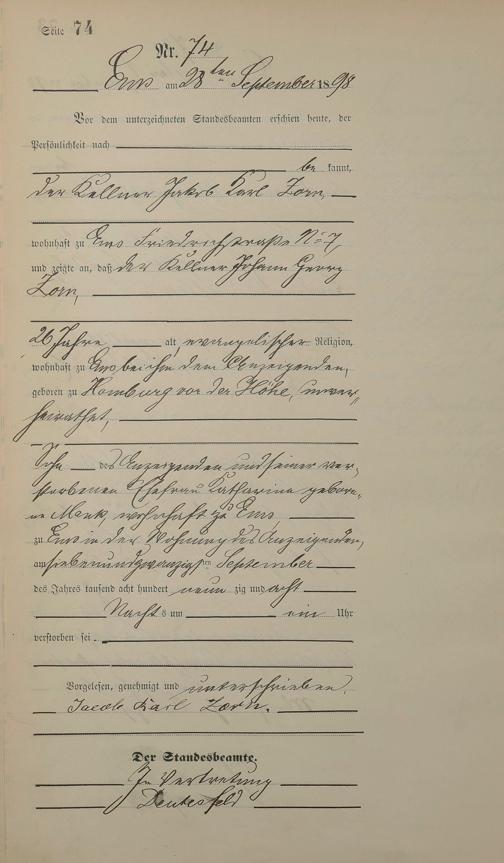 Seite 74
Nr. 74
Ems am 28ten September 1898
Vor dem unterzeichneten Standesbeamten erschien heute, der
Persönlichkeit nach
be kannt,
der Kellner Jakob Karl Zorn,
wohnhaft zu Ems Friedrichstraße No 7,
und zeigte an, daß der Kellner Johann Georg
Zorn,
26 Jahre alt, evangelischer Religion,
wohnhaft zu Ems, bei ihm dem Anzeigenden,
geboren zu Homburg vor der Höhe, unver-
heirathet,
Sohn des Anzeigenden und seiner ver-
storbenen Ehefrau Katharina gebore-
ne Menk, wohnhaft zu Ems,
zu Ems in der Wohnung des Anzeigenden,
am siebenundzwanzigsten September
des Jahres tausend acht hundert neun zig und acht
Nacht s um ein Uhr
verstorben sei.
Vorgelesen, genehmigt und unterschrieben.
Jacob Karl Zorn.
Der Standesbeamte.
In Vertretung